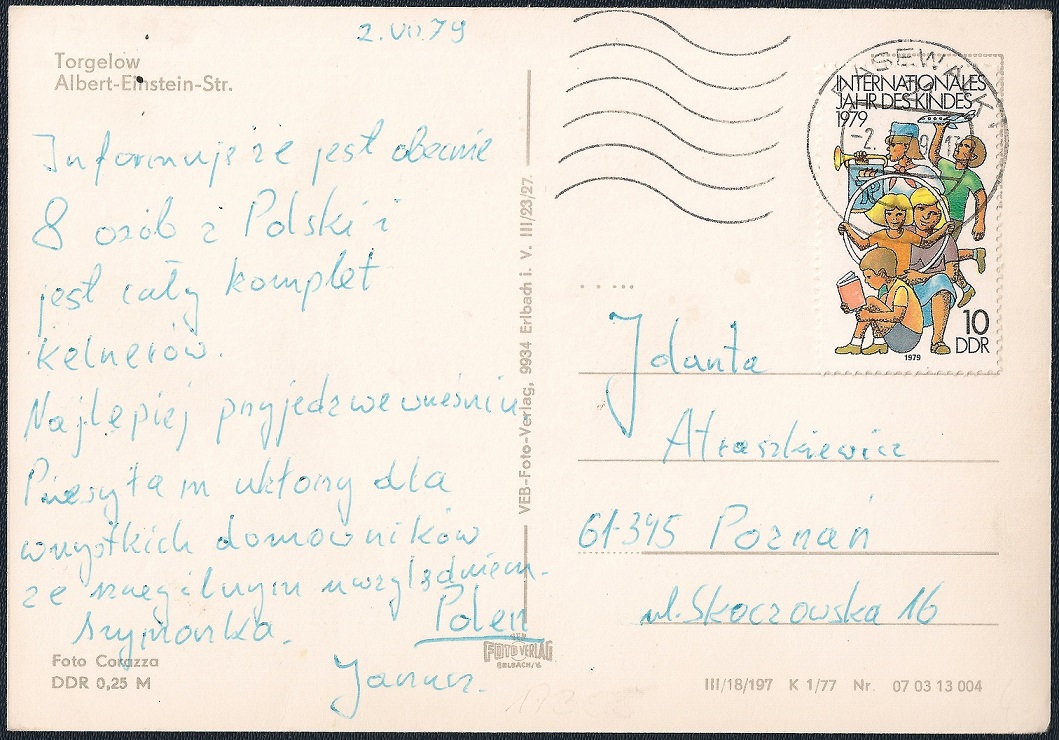 2.VII.79
Torgelow
Albert-Einstein-Str.
Informuje że jest obecnie
8 osób z Polski i
jest cały komplet
kelnerów.
Najlepiej przyjedź we wrześniu
Przesyłam ukłony dla
wszystkich domowników
ze szczególnym uwzględnieniem
Szymonka.
Polen
Janusz.
Foto Corazza
DDR 0,25 M
VEB-Foto-Verlag, 9934 Erlbach i. V. III/23/27.
FOTO VERLAG
ERLBACH/V.
PASEWALK 1
-2. 9-13
INTERNATIONALES
JAHR DES KINDES
1979
10
DDR
1979
Jolanta
Atraszkiewicz
61-345 Poznań
ul. Skoczowska 16
III/18/197 K 1/77 Nr. 07 03 13 004